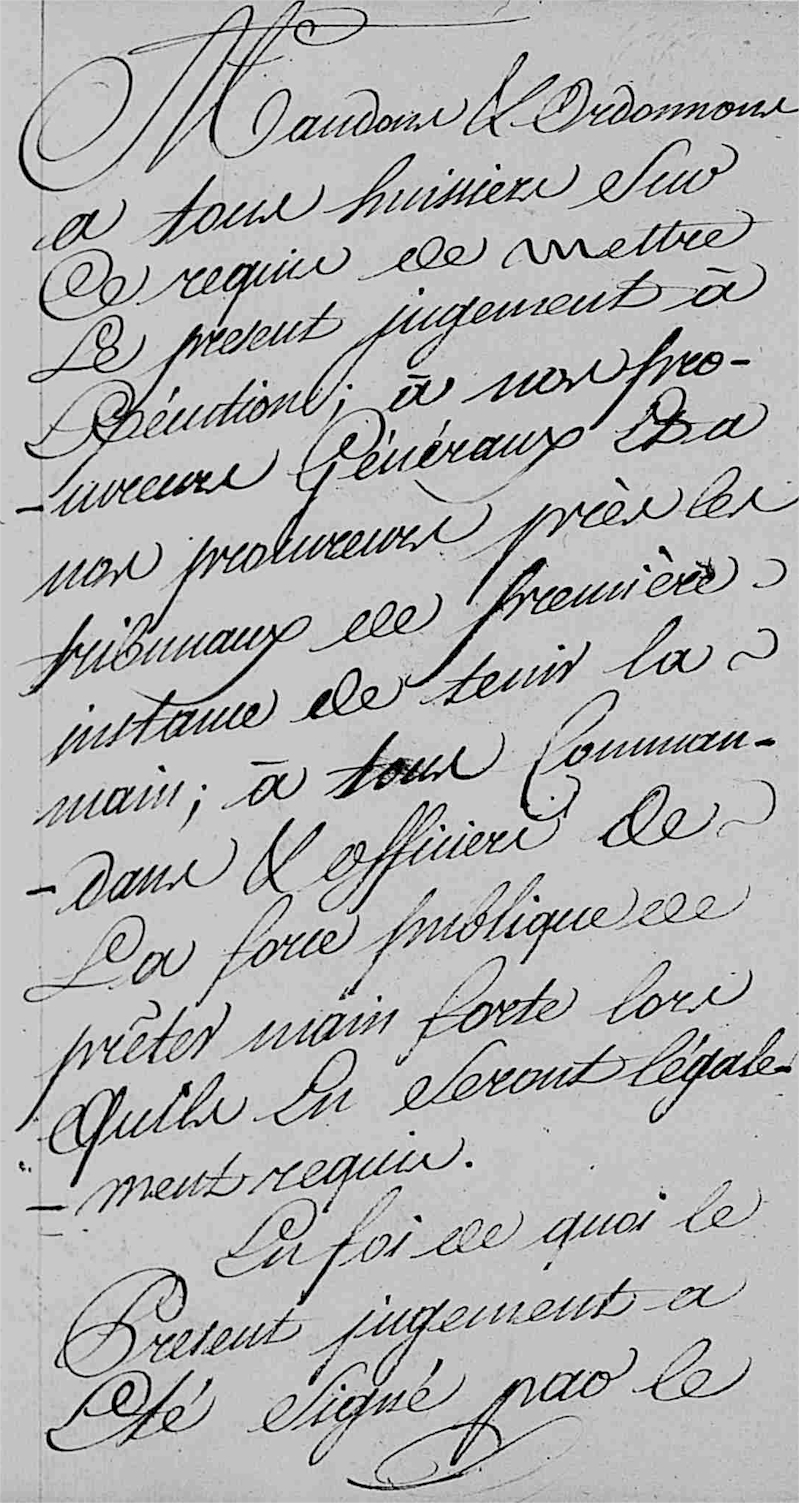 Mandons & Ordonnons
a tous huissiers sur
Ce requis de mettre
Le present jugement à
Exécution; à nos pro-
-cureurs Généraux Et a
nos procureurs près les
tribunaux de première
instance de tenir la
main; à tous Comman-
-dans & officiers de
La force publique de
prêter main forte lors
Quils En seront légale-
-ment requis.
En foi de quoi le
Present jugement a
Eté signé par le